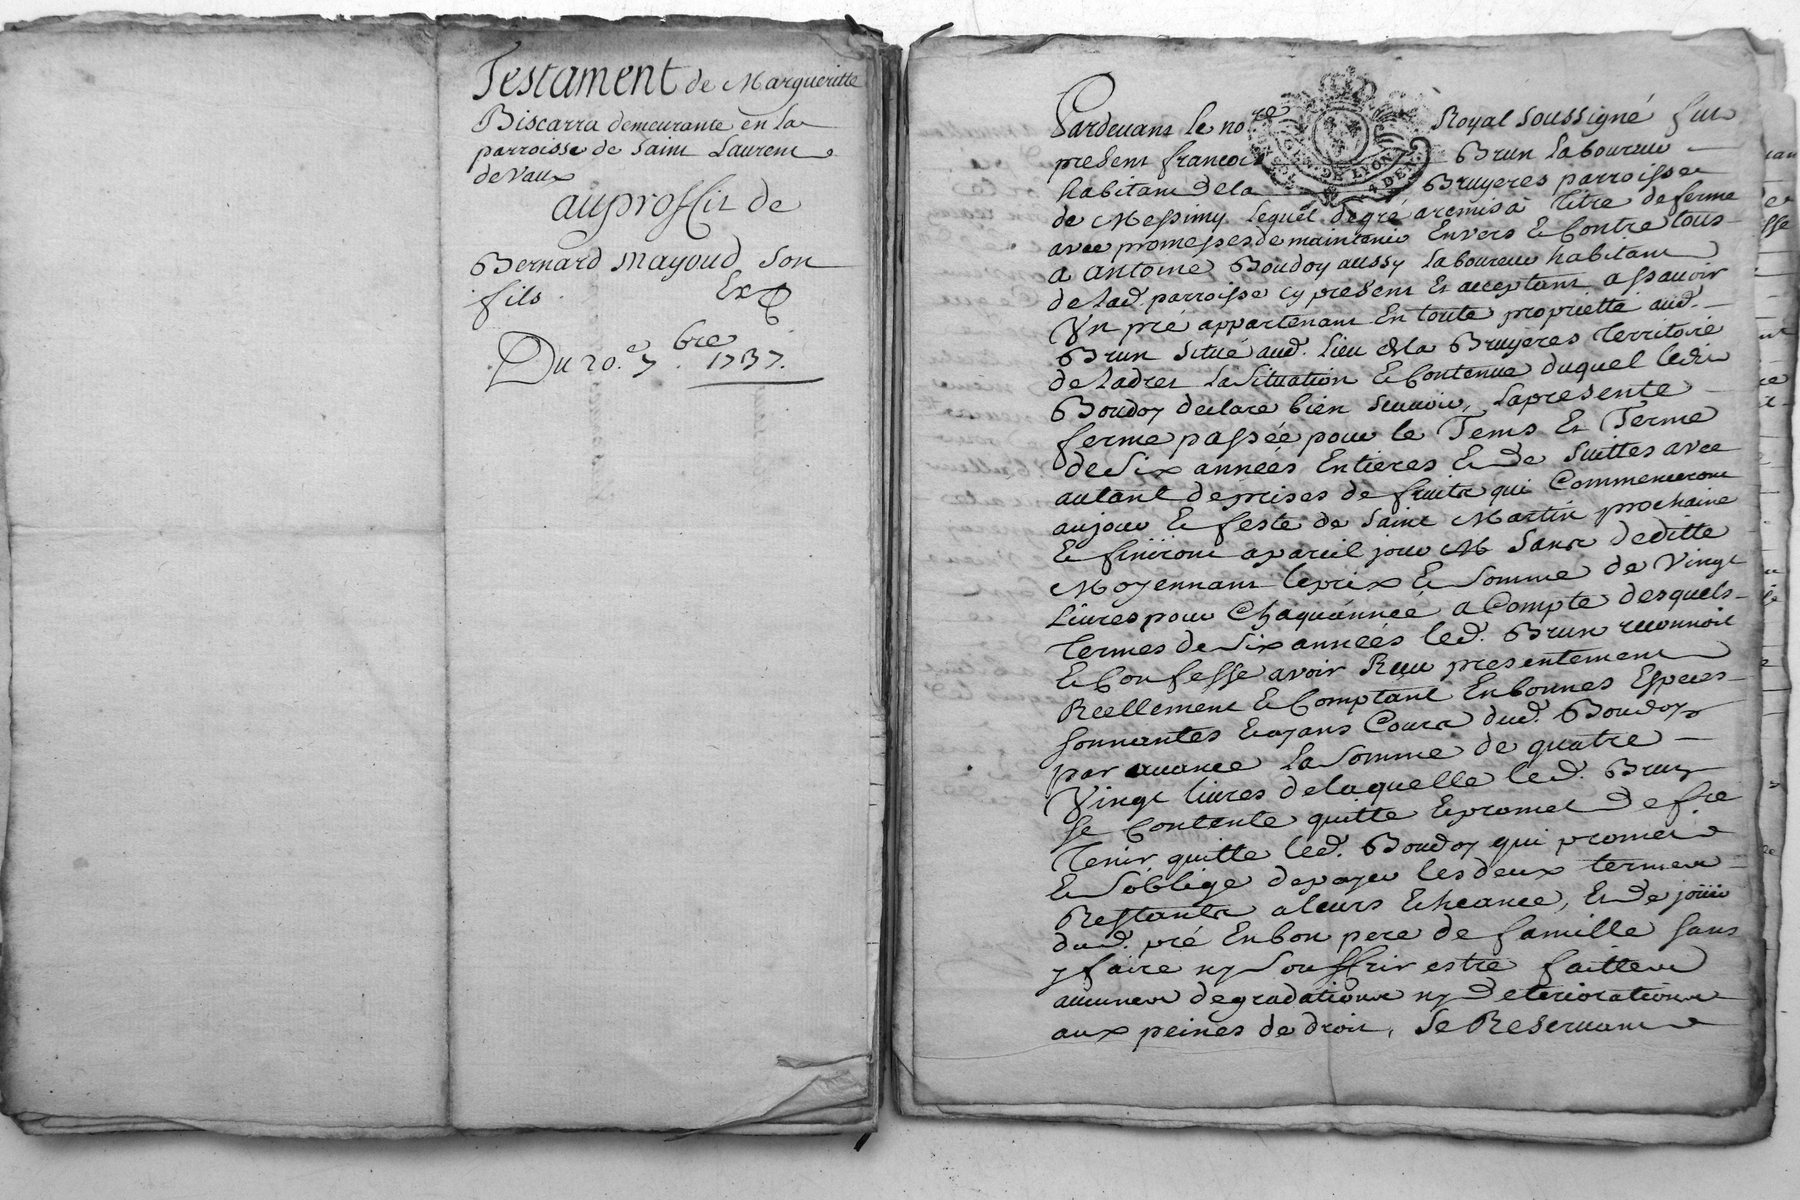 Testament de Margueritte
Biscarra demeurante en la
parroisse de Saint Laurent
de Vaux
au proffit de
Bernard Mayoud son
fils. Exp
Du 20.e 7.bre 1737.
Pardevant le no.re Royal soussigné fut
present francois Brun laboureur
habitant de la Bruyeres parroisse
de Messimy lequel de gré a remis a titre de ferme
avec promesses de maintenir Envers & Contre tous
a antoine Boudoy aussy laboureur habitant
de lad. parroisse cy present et acceptant a sçavoir
Un pré appartenant En toute propriette aud.
Brun situé aud. lieu de la Bruyeres Territoire
de la situation & Contenue duquel ledit
Boudoy declare bien scavoir, la presente
ferme passée pour le Tems et Terme
de Six années Entieres & de suittes avec
autant de prises de fruits qui Commenceront
au jour & feste de Saint Martin prochaine
& finiront a pareil jour Sans deditte
Moyennant le prix & Somme de Vingt
Livres pour Chaquannéé a Compte desquels
Termes de Six annéés led. Brun reconnoit
& Confesse avoir Receu presentement
Réellement & Comptant En bonnes Especes
sonnantes & ayans Cours dud. Boudoy
par avance la somme de quatre
Vingt livres de laquelle led. Brun
se Contente quitte & promet de f.re
Tenir quitte led. Boudoy qui promet
& s'oblige de payer les deux termes
Restants a leurs Echeance, & de joüir
dud. pré En bon pere de famille sans
y faire ny souffrir estre faitte
aucunes degradations ny deteriorations
aux peines de droit, se Reservant
GEN. DE LYON
4 DEN.